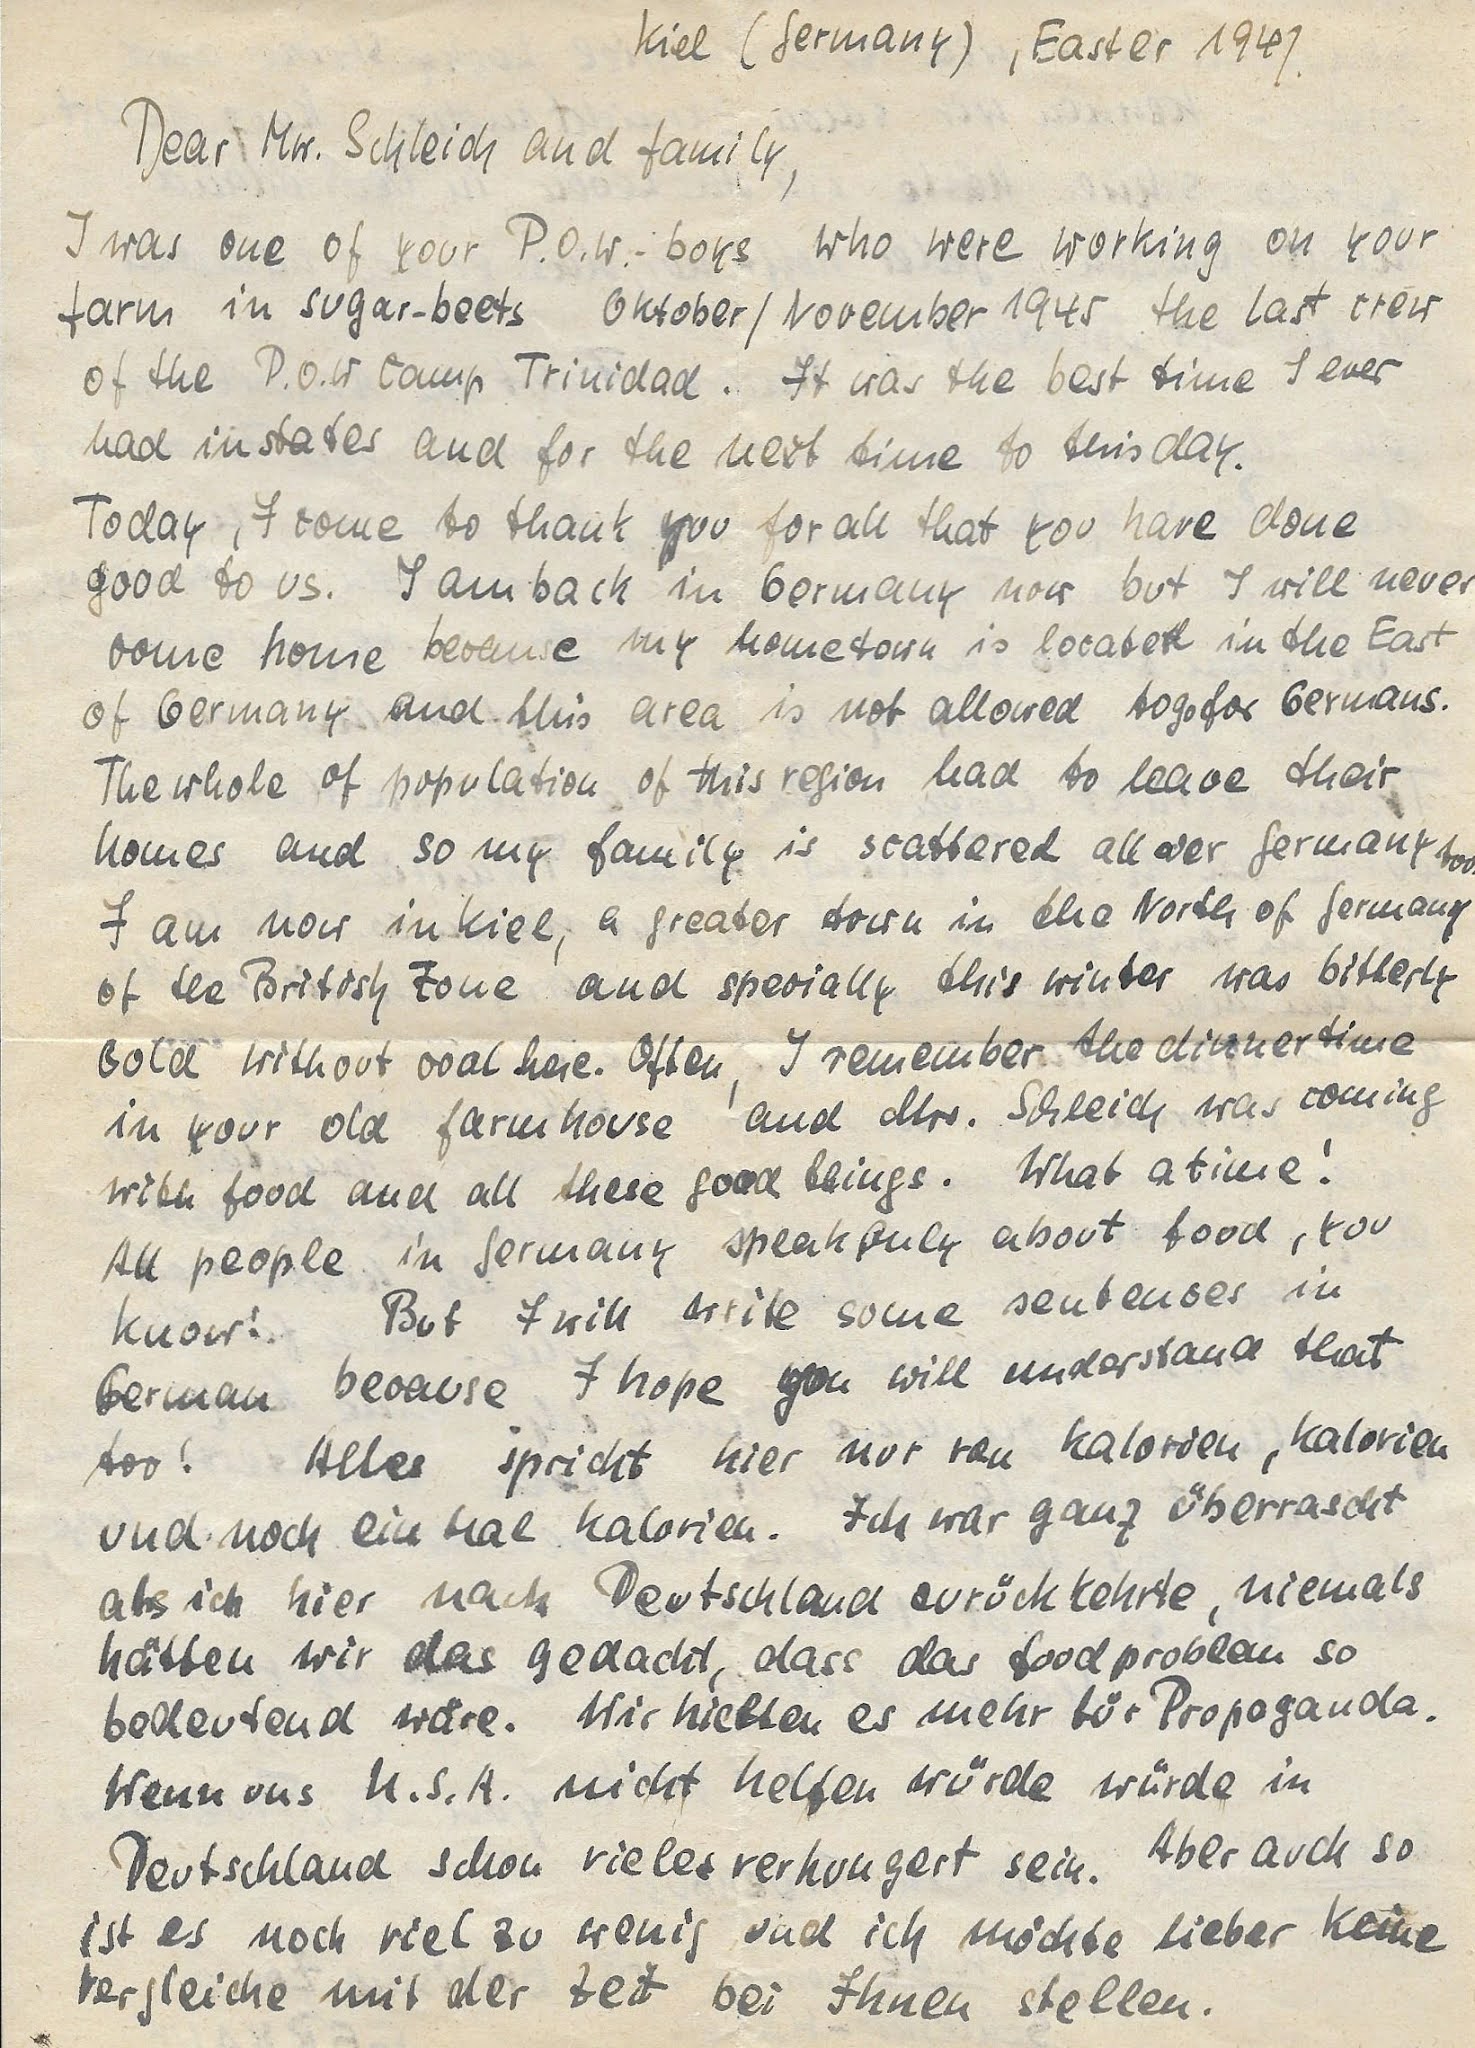 Kiel (Germany), Easter 1947.
Dear Mr. Schleich and family,
I was one of your P.O.W.-boys who were working on your
farm in sugar-beets Oktober/November 1945 the last crew
of the P.O.W Camp Trinidad. It was the best time I ever
had in states and for the next time to this day.
Today, I come to thank you for all that you have done
good to us. I am back in Germany now but I will never
come home because my hometown is located in the East
of Germany and this area is not allowed to go for Germans.
The whole of population of this region had to leave their
homes and so my family is scattered all over Germany too.
I am now in Kiel, a greater town in the North of Germany
of the British Zone and specially this winter was bitterly
cold without coal here. Often, I remember the dinnertime
in your old farmhouse and Mrs. Schleich was coming
with food and all these good things. What a time!
All people in Germany speak only about food, you
know! But I will write some sentences in
German because I hope you will understand that
too! Alles spricht hier nur von Kalorien, Kalorien
und noch ein mal Kalorien. Ich war ganz überrascht
als ich hier nach Deutschland zurückkehrte, niemals
hätten wir das gedacht, dass das foodproblem so
bedeutend wäre. Wir hielten es mehr für Propaganda.
Wenn uns U.S.A. nicht helfen würde würde in
Deutschland schon vieles verhungert sein. Aber auch so
ist es noch viel zu wenig und ich möchte lieber keine
Vergleiche mit der Zeit bei Ihnen stellen.